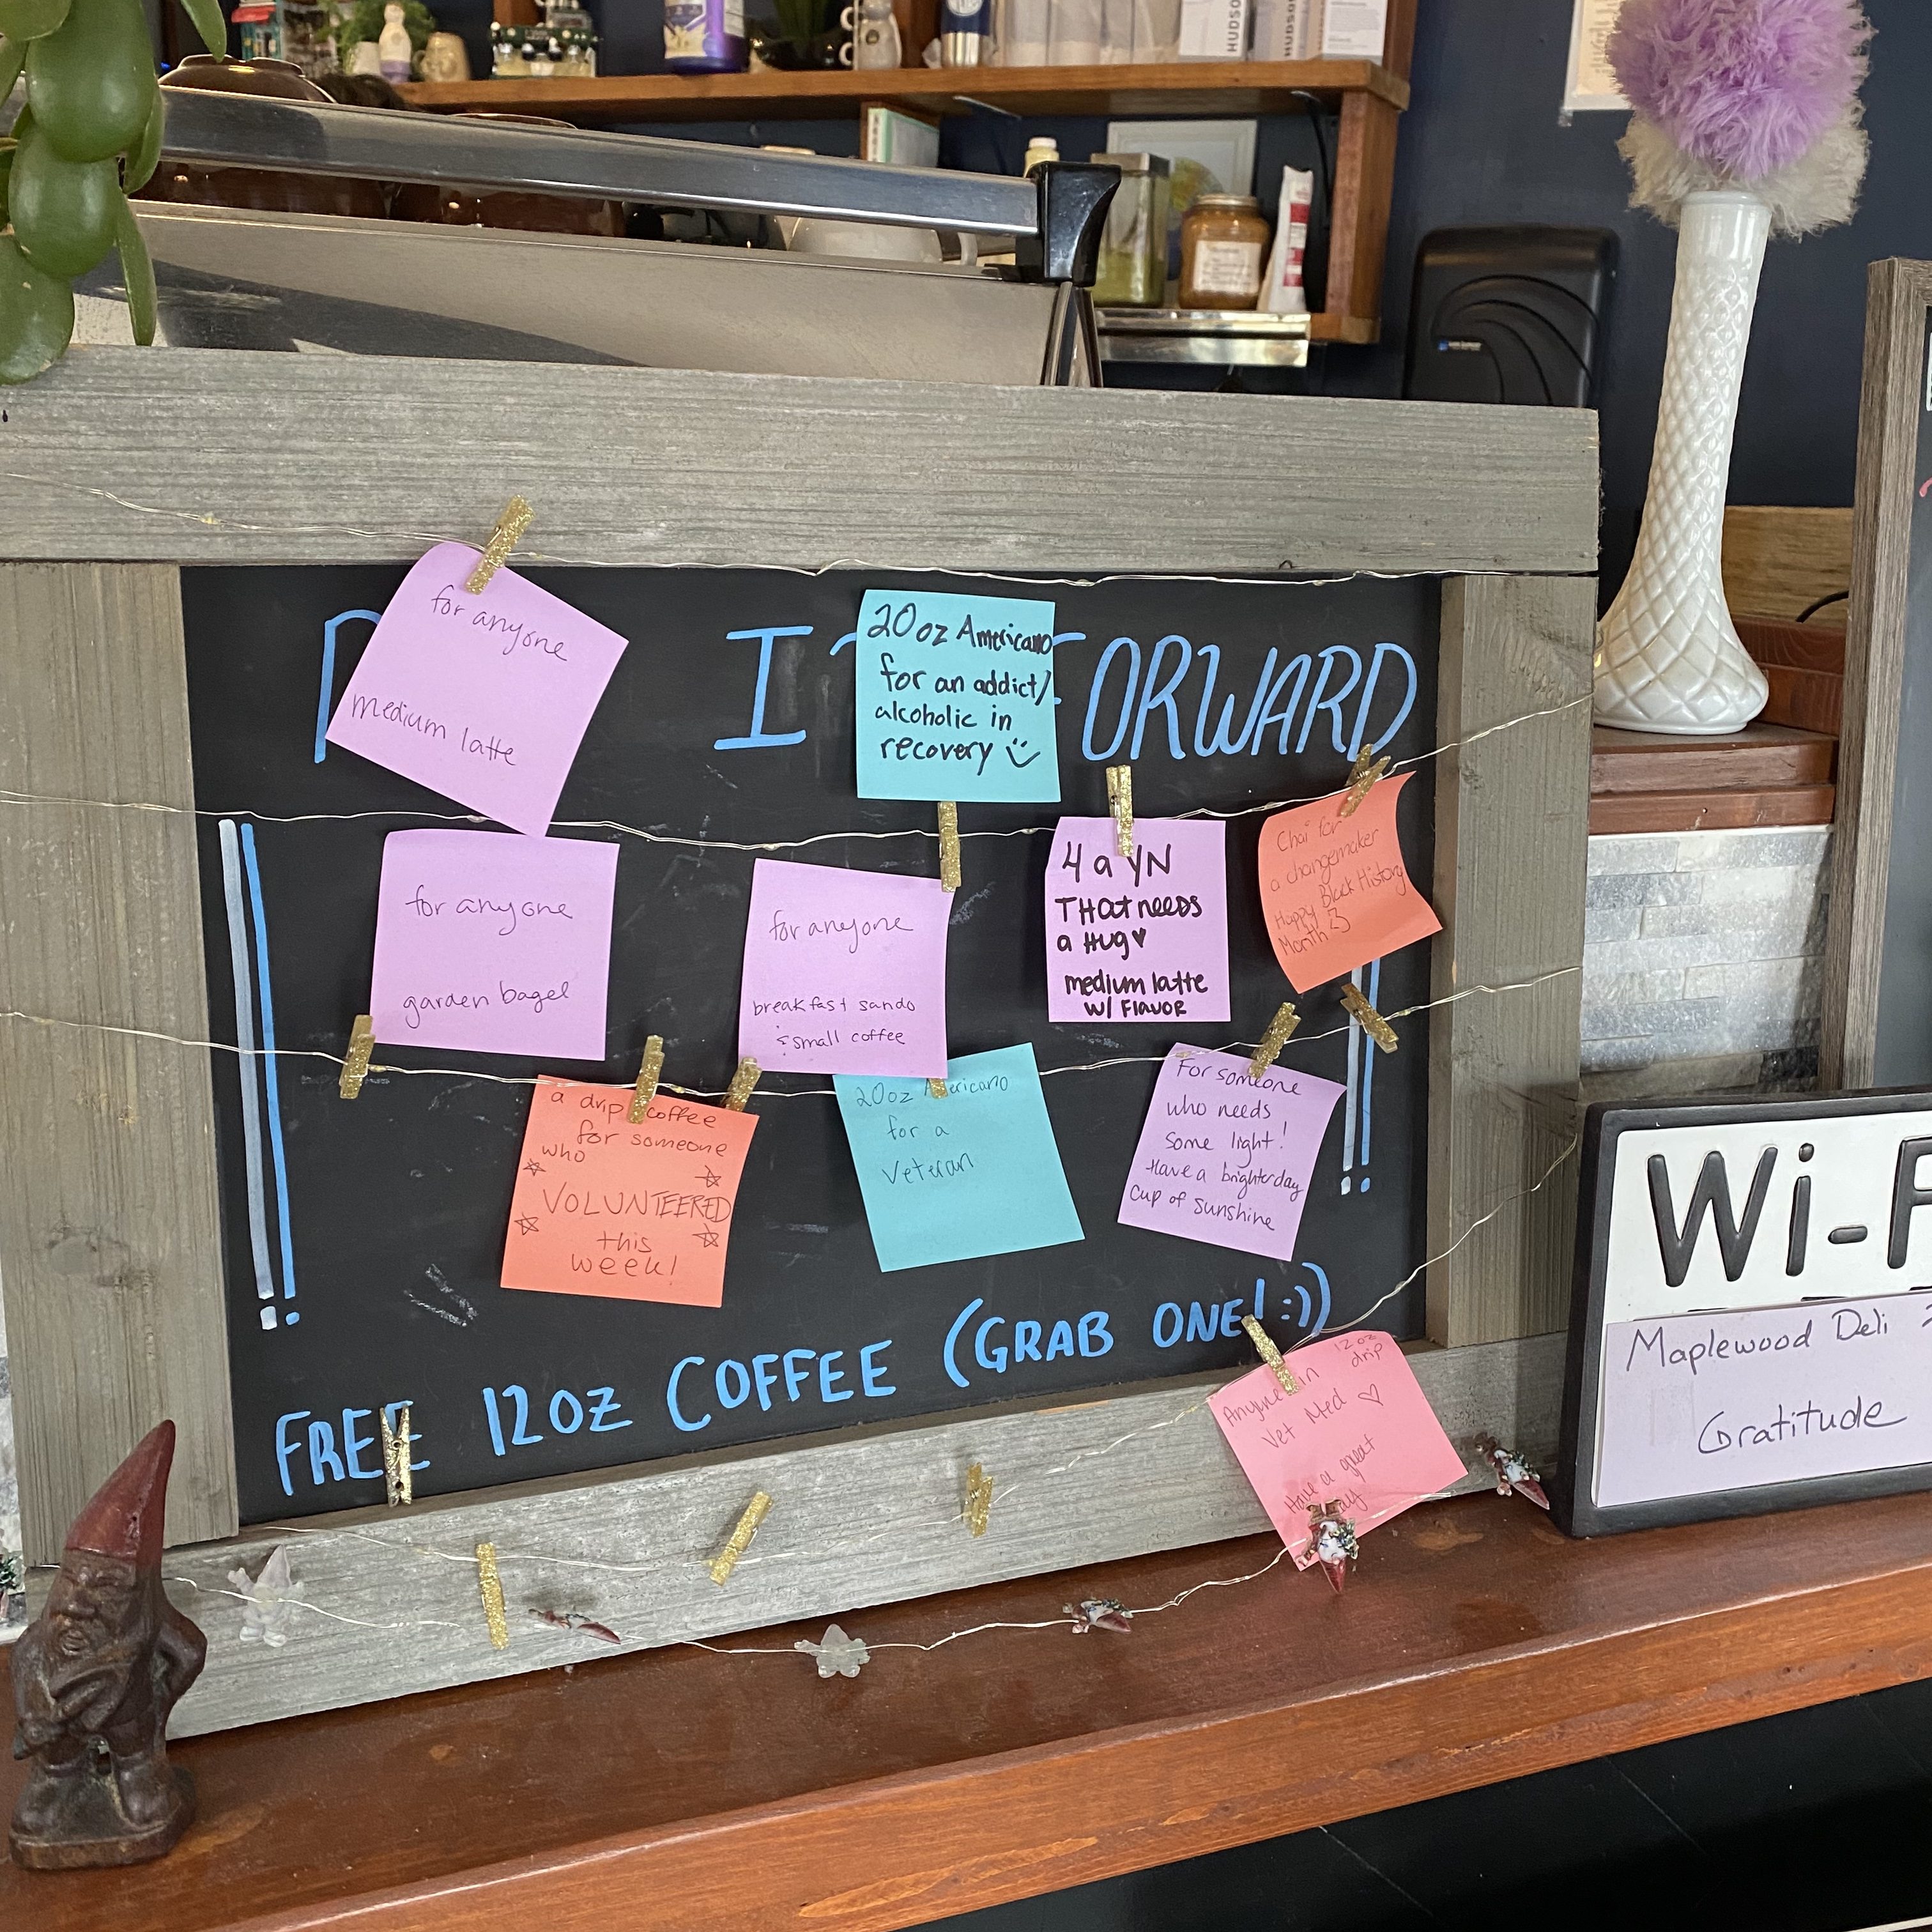 HUDSO
HUDSON
for anyone
medium latte
20 oz Americano
for an addict/
alcoholic in
recovery
I
ORWARD
for anyone
garden bagel
for anyone
breakfast sando
& small coffee
4 a YN
THAT NEEDS
a HUG♥
medium latte
w/ FLAVOR
Chai for
a changemaker
Happy Black History
Month <3
a drip coffee
for someone
who
VOLUNTEERED
this
week!
20oz Americano
for a
Veteran
For someone
who needs
some light!
Have a brighterday
cup of sunshine
FREE 12OZ COFFEE (GRAB ONE! :))
12oz
drip
Anyone in
Vet Med ♡
Have a great
Wi-F
Maplewood Deli
Gratitude